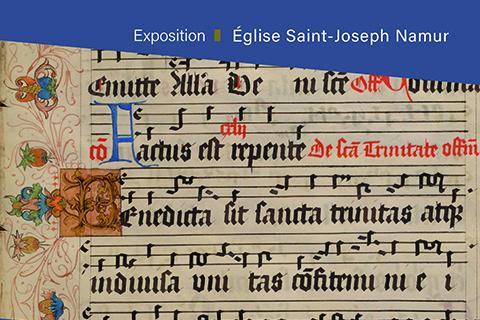 Exposition Église Saint-Joseph Namur
Emitte Alła Ve ni scē Off
cō Factus est repente De scā Trinitate offm
Benedicta sit sancta trinitas atq
indiuisa vni tas cōfitemi ni e i